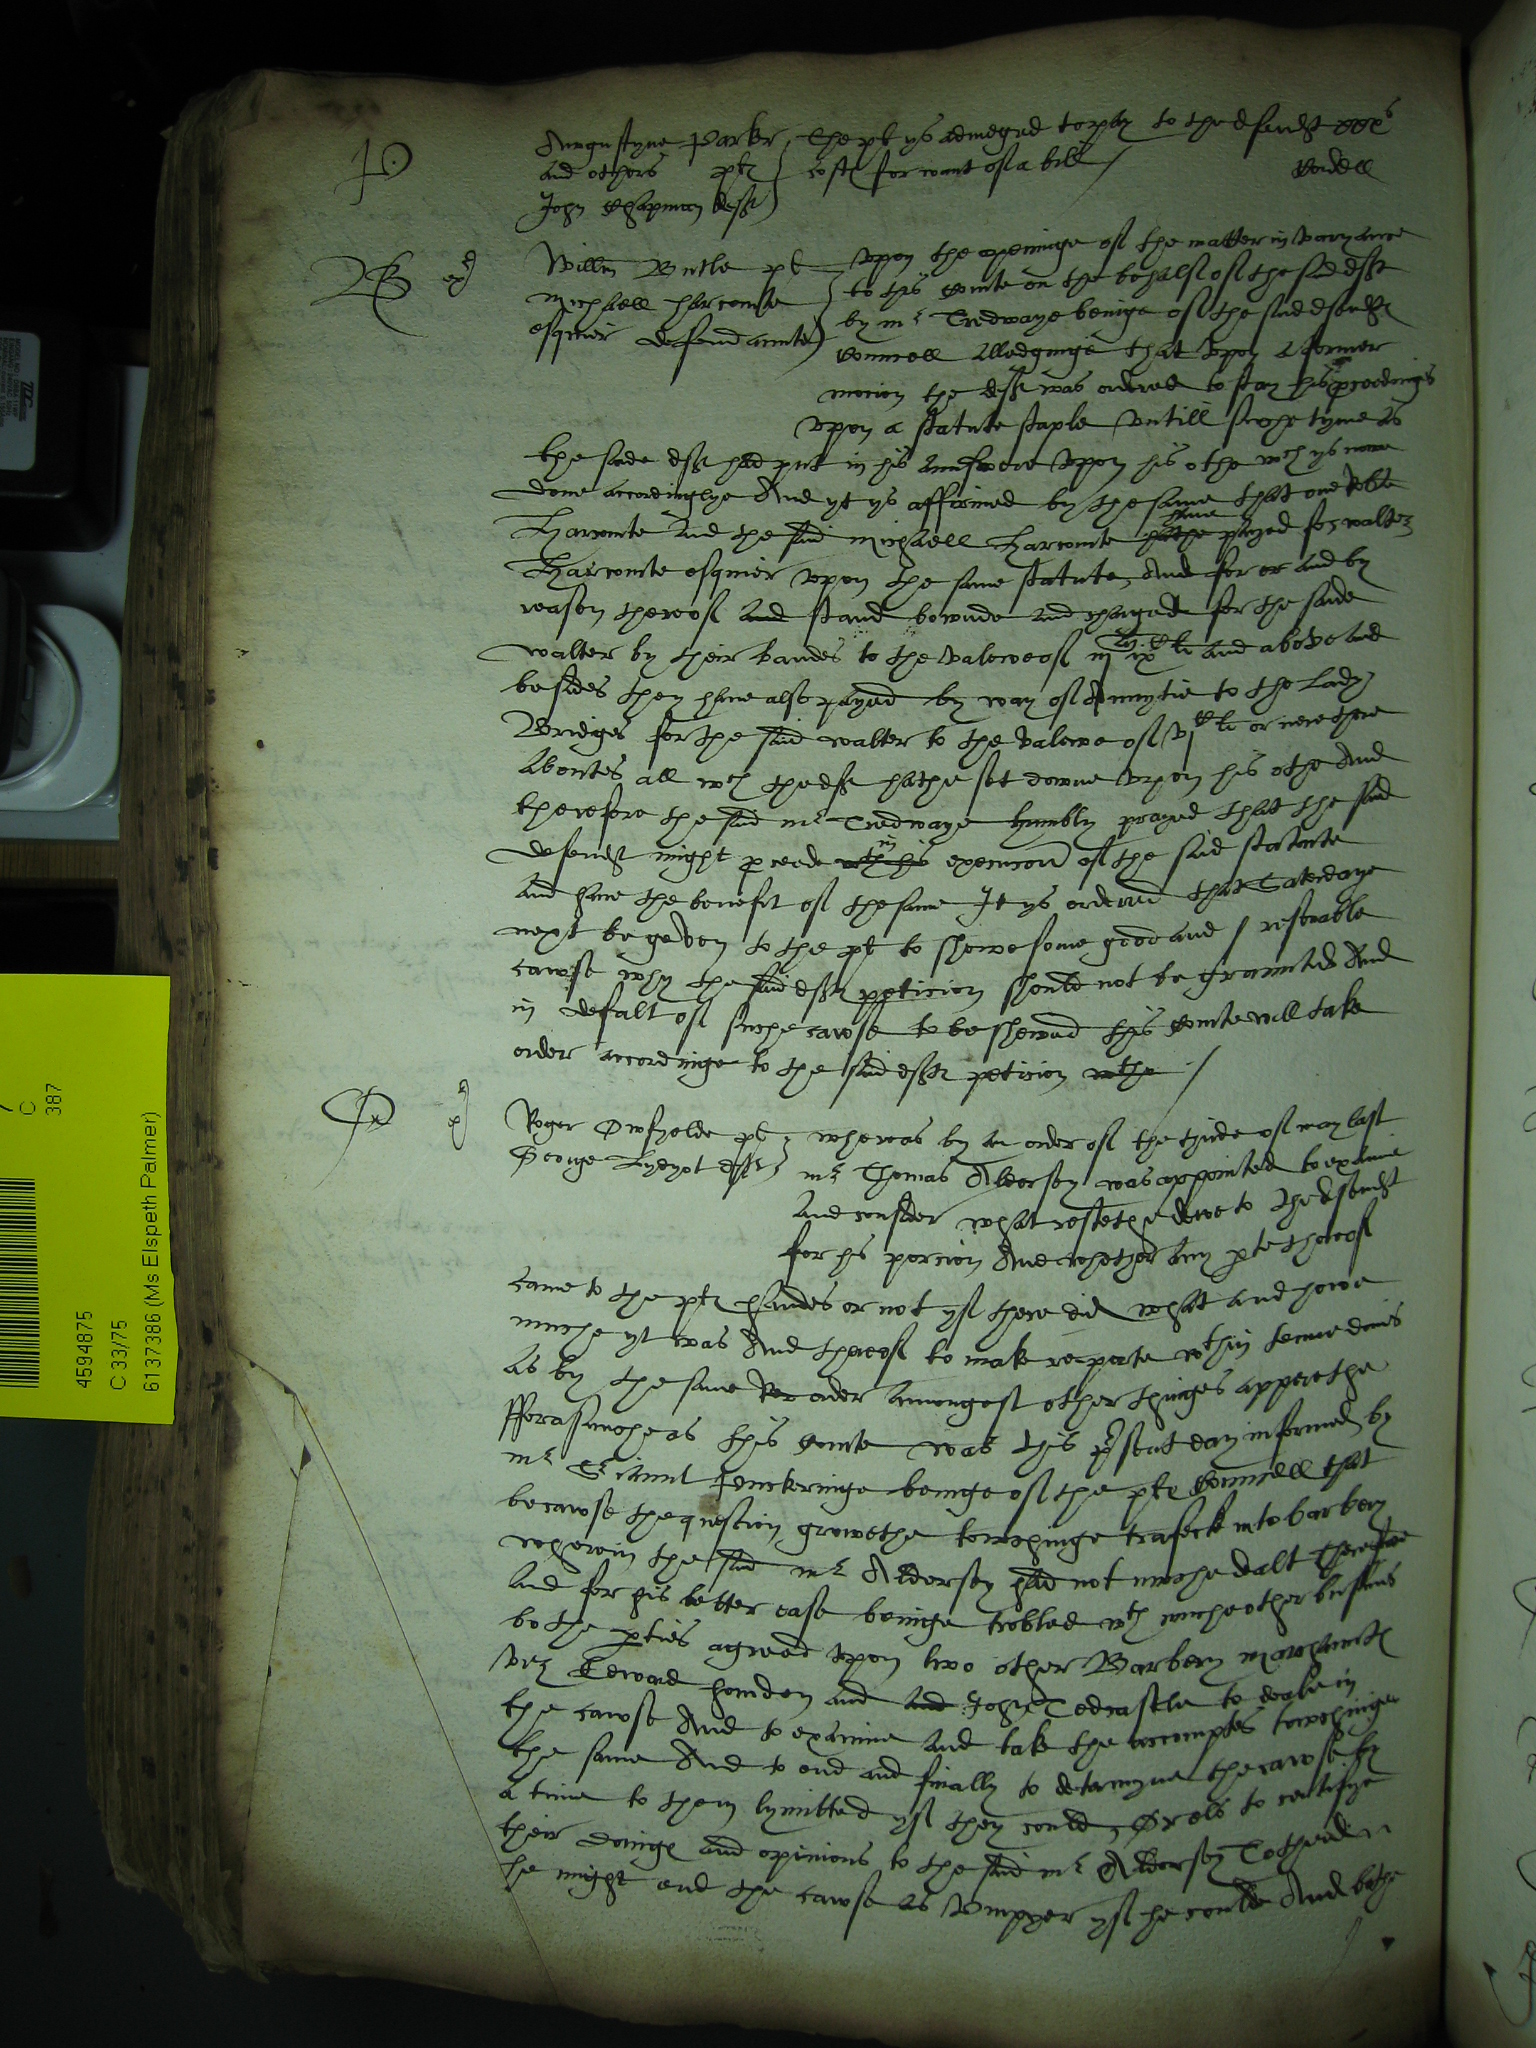 P
Augustyne Parker The pl ys adiudged to pay to the defendt xxxs
and others plz costes for want of a bill /
John Chapman deft
B
Willm Butle pl Vpon the openinge of the matter in varyance
Michaell Harcourte to this Courte on the behalf of the said deft
esquier defendaunte by mr Tredwaye beinge of the said defendtes
Councell Alledginge that vpon a former
mocion the deft was ordered to stay his proceedinges
vpon a statute staple vntill suche tyme as
the saide deft had put in his Aunswere vppon his othe wch ys nowe
done accordinglye And yt ys affirmed by the same that one Robte
Harcourte and the said Michaell Harcourte hathe haue payed for walter
Harcourte esquier vpon the same statute, And for or and by
reason thereof and stand bounde and charged for the saide
walter by their bandes to the valewe of li and above And
besides they haue also payed by way of Annytie to the Lady
Bridges for the said walter to the valewe of li or nere there
aboutes all wch the deft hathe set downe vpon his othe And
therefore the said mr Tredwaye humbly prayed that the said
defendt might procede wth his in execucion of the said statute
and haue the benefit of the same It ys ordered that Saterdaye
next be geven to the pl to shewe some good and / resonable
cawse why the said deftes peticion should not be graunted And
in defalt of suche cawse to be shewed this Courte will take
order accordinge to the said deftes peticion wthe /
O
Roger Owfyelde pl whereas by an order of the thirde of may last
George deft mr Thomas Aldersey was appointed to examine
and consider what restethe dewe to the defendt
for his porcion And whether any parte thereof
came to the plz handes or not yf there did what and howe
muche yt was And thereof to make reporte wthin
as by the same order amongest other thinges apperethe
fforasmuche as this Courte was this present day informed by
mr Seriaunt Puckeringe beinge of the plz Councell that
becawse the question growethe towchinge trafeck into barbery
wherein the said mr Aldersey had not muche dalt Therefore
and for his better ease beinge trobled wth muche other busines
bothe parties agreed vpon two other Barbery marchauntes
viz Edward and and John Tedcastle to deale in
the cawse And to examine and take the accomptes towchinge
the same And to end and finally to determyne the cawse by
a time to them lymitted yf they could, Or els to certifye
their doinges and opinions to the said mr Aldersey To thend
he might end the cawse as Vmpyer yf he coulde And bothe
C
387
4594875
C 33/75
6137386 (Ms Elspeth Palmer)